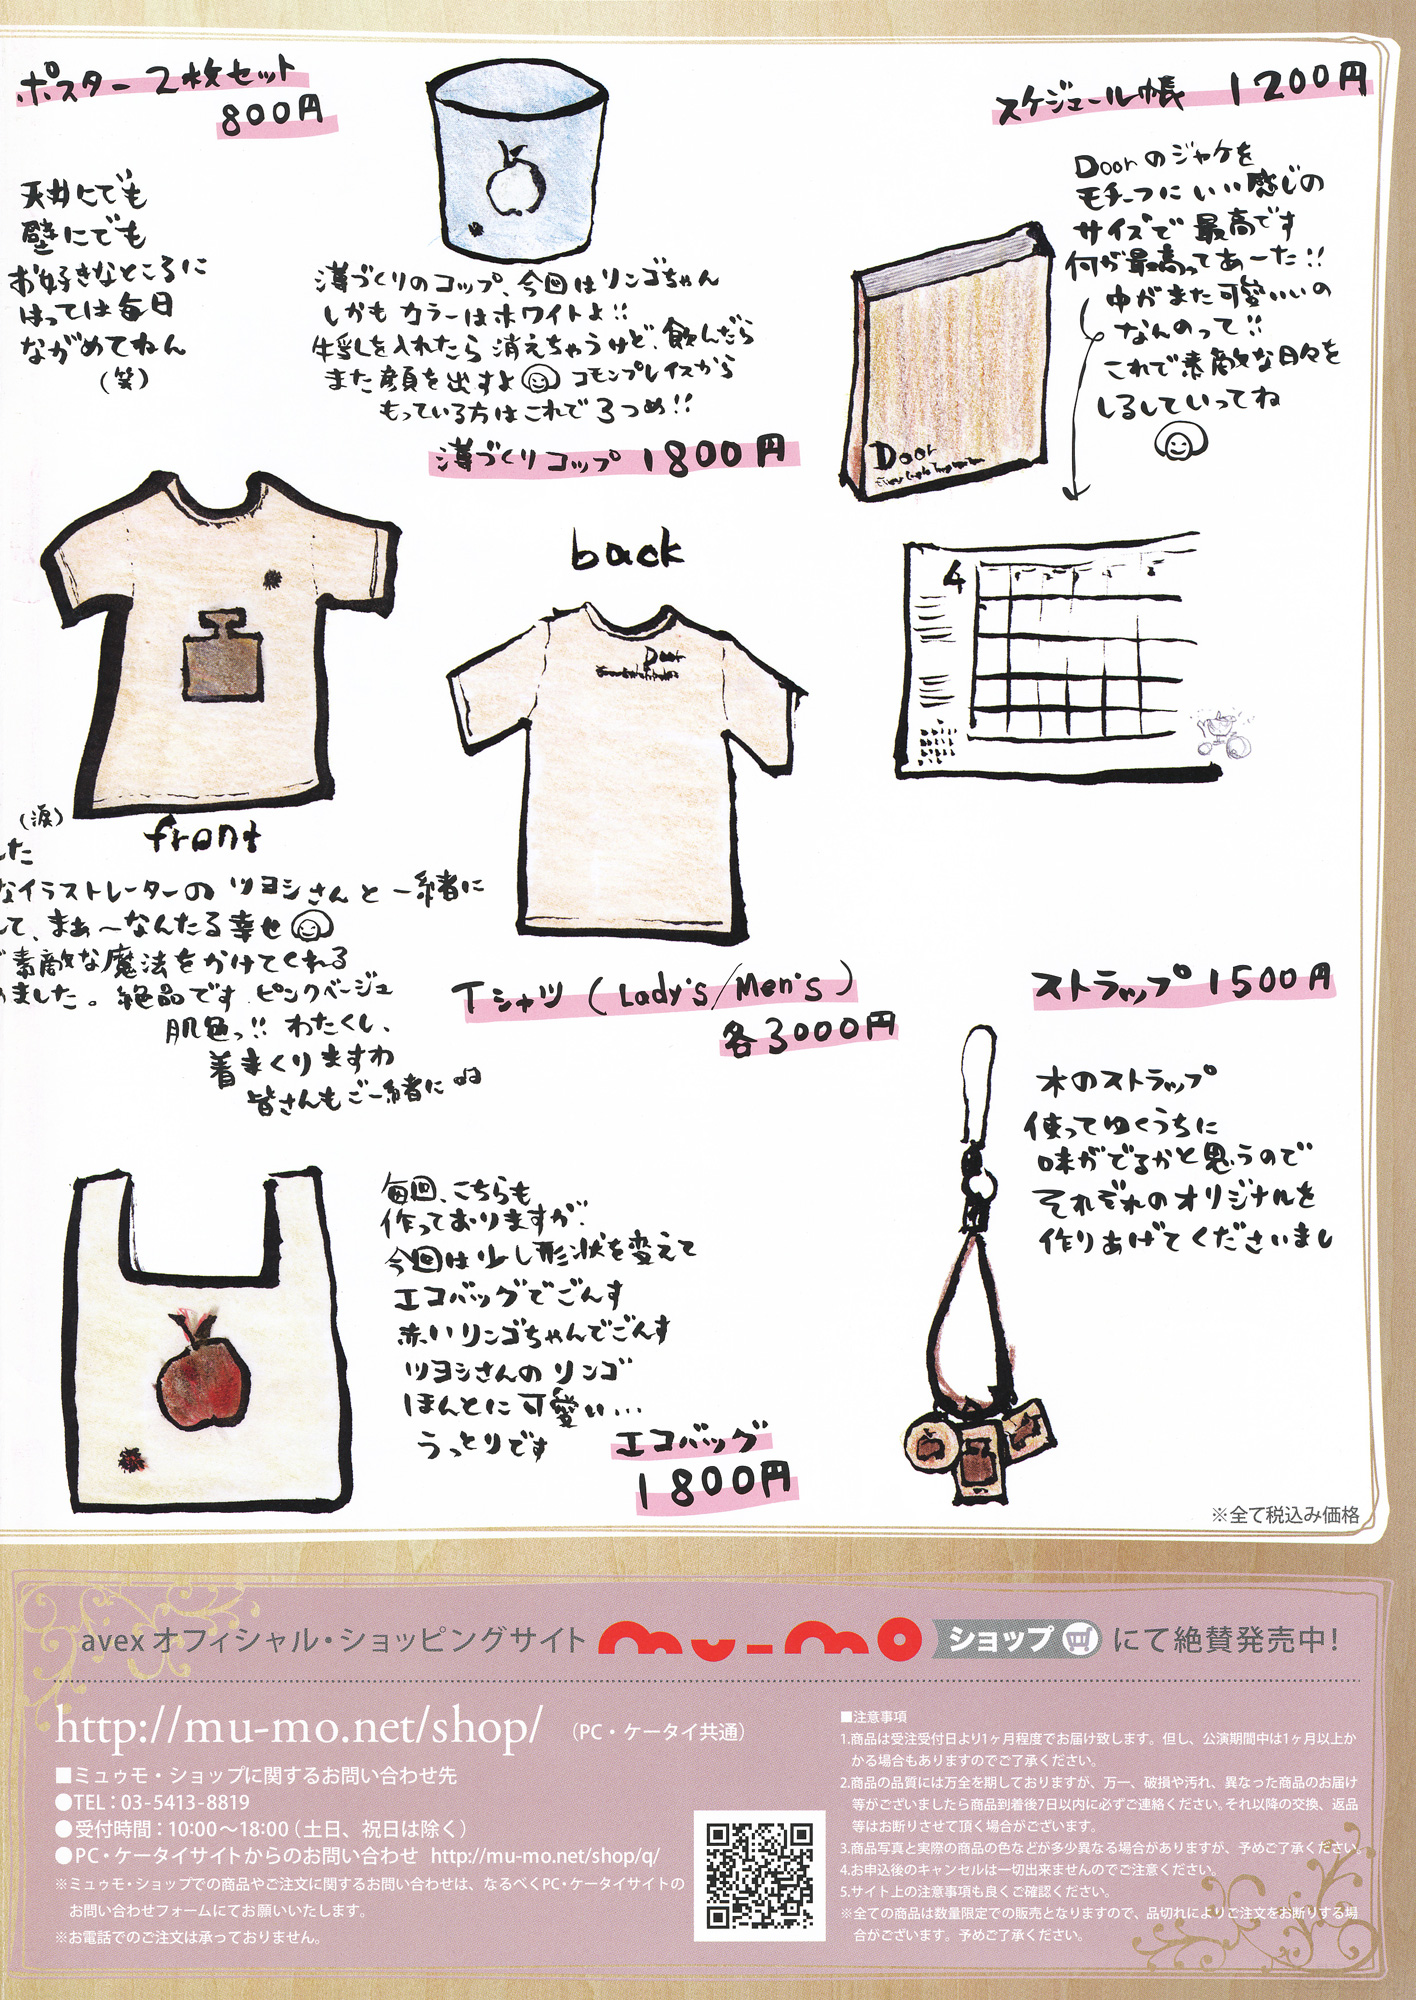 ポスター 2枚セット
800円
天井にでも
壁にでも
お好きなところに
はっては毎日
ながめてねん
(笑)
溥づくりのコップ、今回はリンゴちゃん
しかも カラーはホワイトよ!!
牛乳を入れたら 消えちゃうけど、飲んだら
また顔を出すよ コモンプレイスから
もっている方はこれで3つめ!!
溥づくりコップ 1800円
スケジュール帳 1200円
Doorのジャケを
モチーフにいい感じの
サイズで 最高です
何が最高ってあーた!!
中がまた可愛いいの
なんのって!!
これで素敵な日々を
しるしていってね
Door
4
back
Door
front
(涙)
した
なイラストレーターの ツヨシさんと一緒に
して、まぁ〜なんたる幸せ
素敵な魔法をかけてくれる
ました。絶品です ピンクベージュ
肌色っ!! わたくし、
着まくりますわ
皆さんもご一緒に
Tシャツ (Lady's/Men's)
各3000円
ストラップ 1500円
木のストラップ
使ってゆくうちに
味がでるかと思うので
それぞれのオリジナルを
作りあげてくださいまし
毎回、こちらも
作っておりますが、
今回は少し形状を変えて
エコバッグでごんす
赤いリンゴちゃんでごんす
ツヨシさんの リンゴ
ほんとに可愛い...
うっとりです
エコバッグ
1800円
※全て税込み価格
avex オフィシャル・ショッピングサイト mu-mo ショップ にて絶賛発売中!
http://mu-mo.net/shop/ (PC・ケータイ共通)
■ミュゥモ・ショップに関するお問い合わせ先
●TEL:03-5413-8819
●受付時間:10:00〜18:00(土日、祝日は除く)
●PC・ケータイサイトからのお問い合わせ http://mu-mo.net/shop/q/
※ミュゥモ・ショップでの商品やご注文に関するお問い合わせは、なるべくPC・ケータイサイトの
お問い合わせフォームにてお願いいたします。
※お電話でのご注文は承っておりません。
■注意事項
1.商品は受注受付日より1ヶ月程度でお届け致します。但し、公演期間中は1ヶ月以上か
かる場合もありますのでご了承ください。
2.商品の品質には万全を期しておりますが、万一、破損や汚れ、異なった商品のお届け
等がございましたら商品到着後7日以内に必ずご連絡ください。それ以降の交換、返品
等はお断りさせて頂く場合がございます。
3.商品写真と実際の商品の色などが多少異なる場合がありますが、予めご了承ください。
4.お申込後のキャンセルは一切出来ませんのでご注意ください。
5.サイト上の注意事項も良くご確認ください。
※全ての商品は数量限定での販売となりますので、品切れによりご注文をお断りする場
合がございます。予めご了承ください。